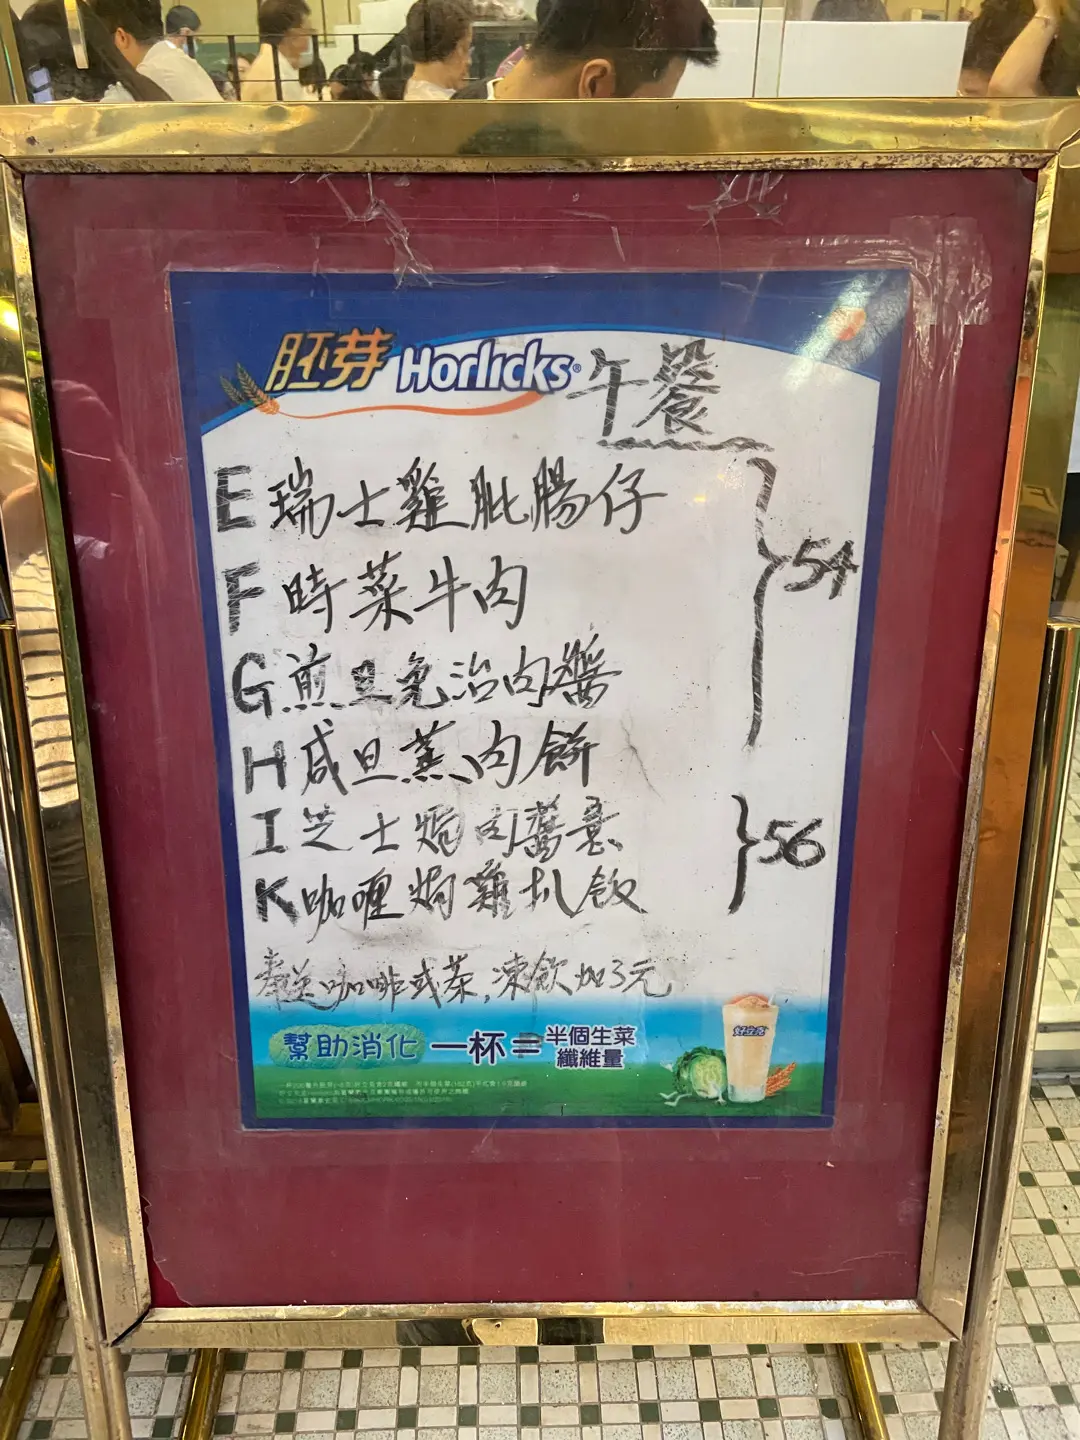 胚芽 Horlicks® 午餐
E 瑞士雞肶腸仔
F 時菜牛肉
54
G 煎旦免治肉醬
H 咸旦蒸肉餅
I 芝士焗肉醬意
56
K 咖喱焗雞扒飯
奉送咖啡或茶,凍飲加3元
幫助消化 一杯=半個生菜纖維量
好立克